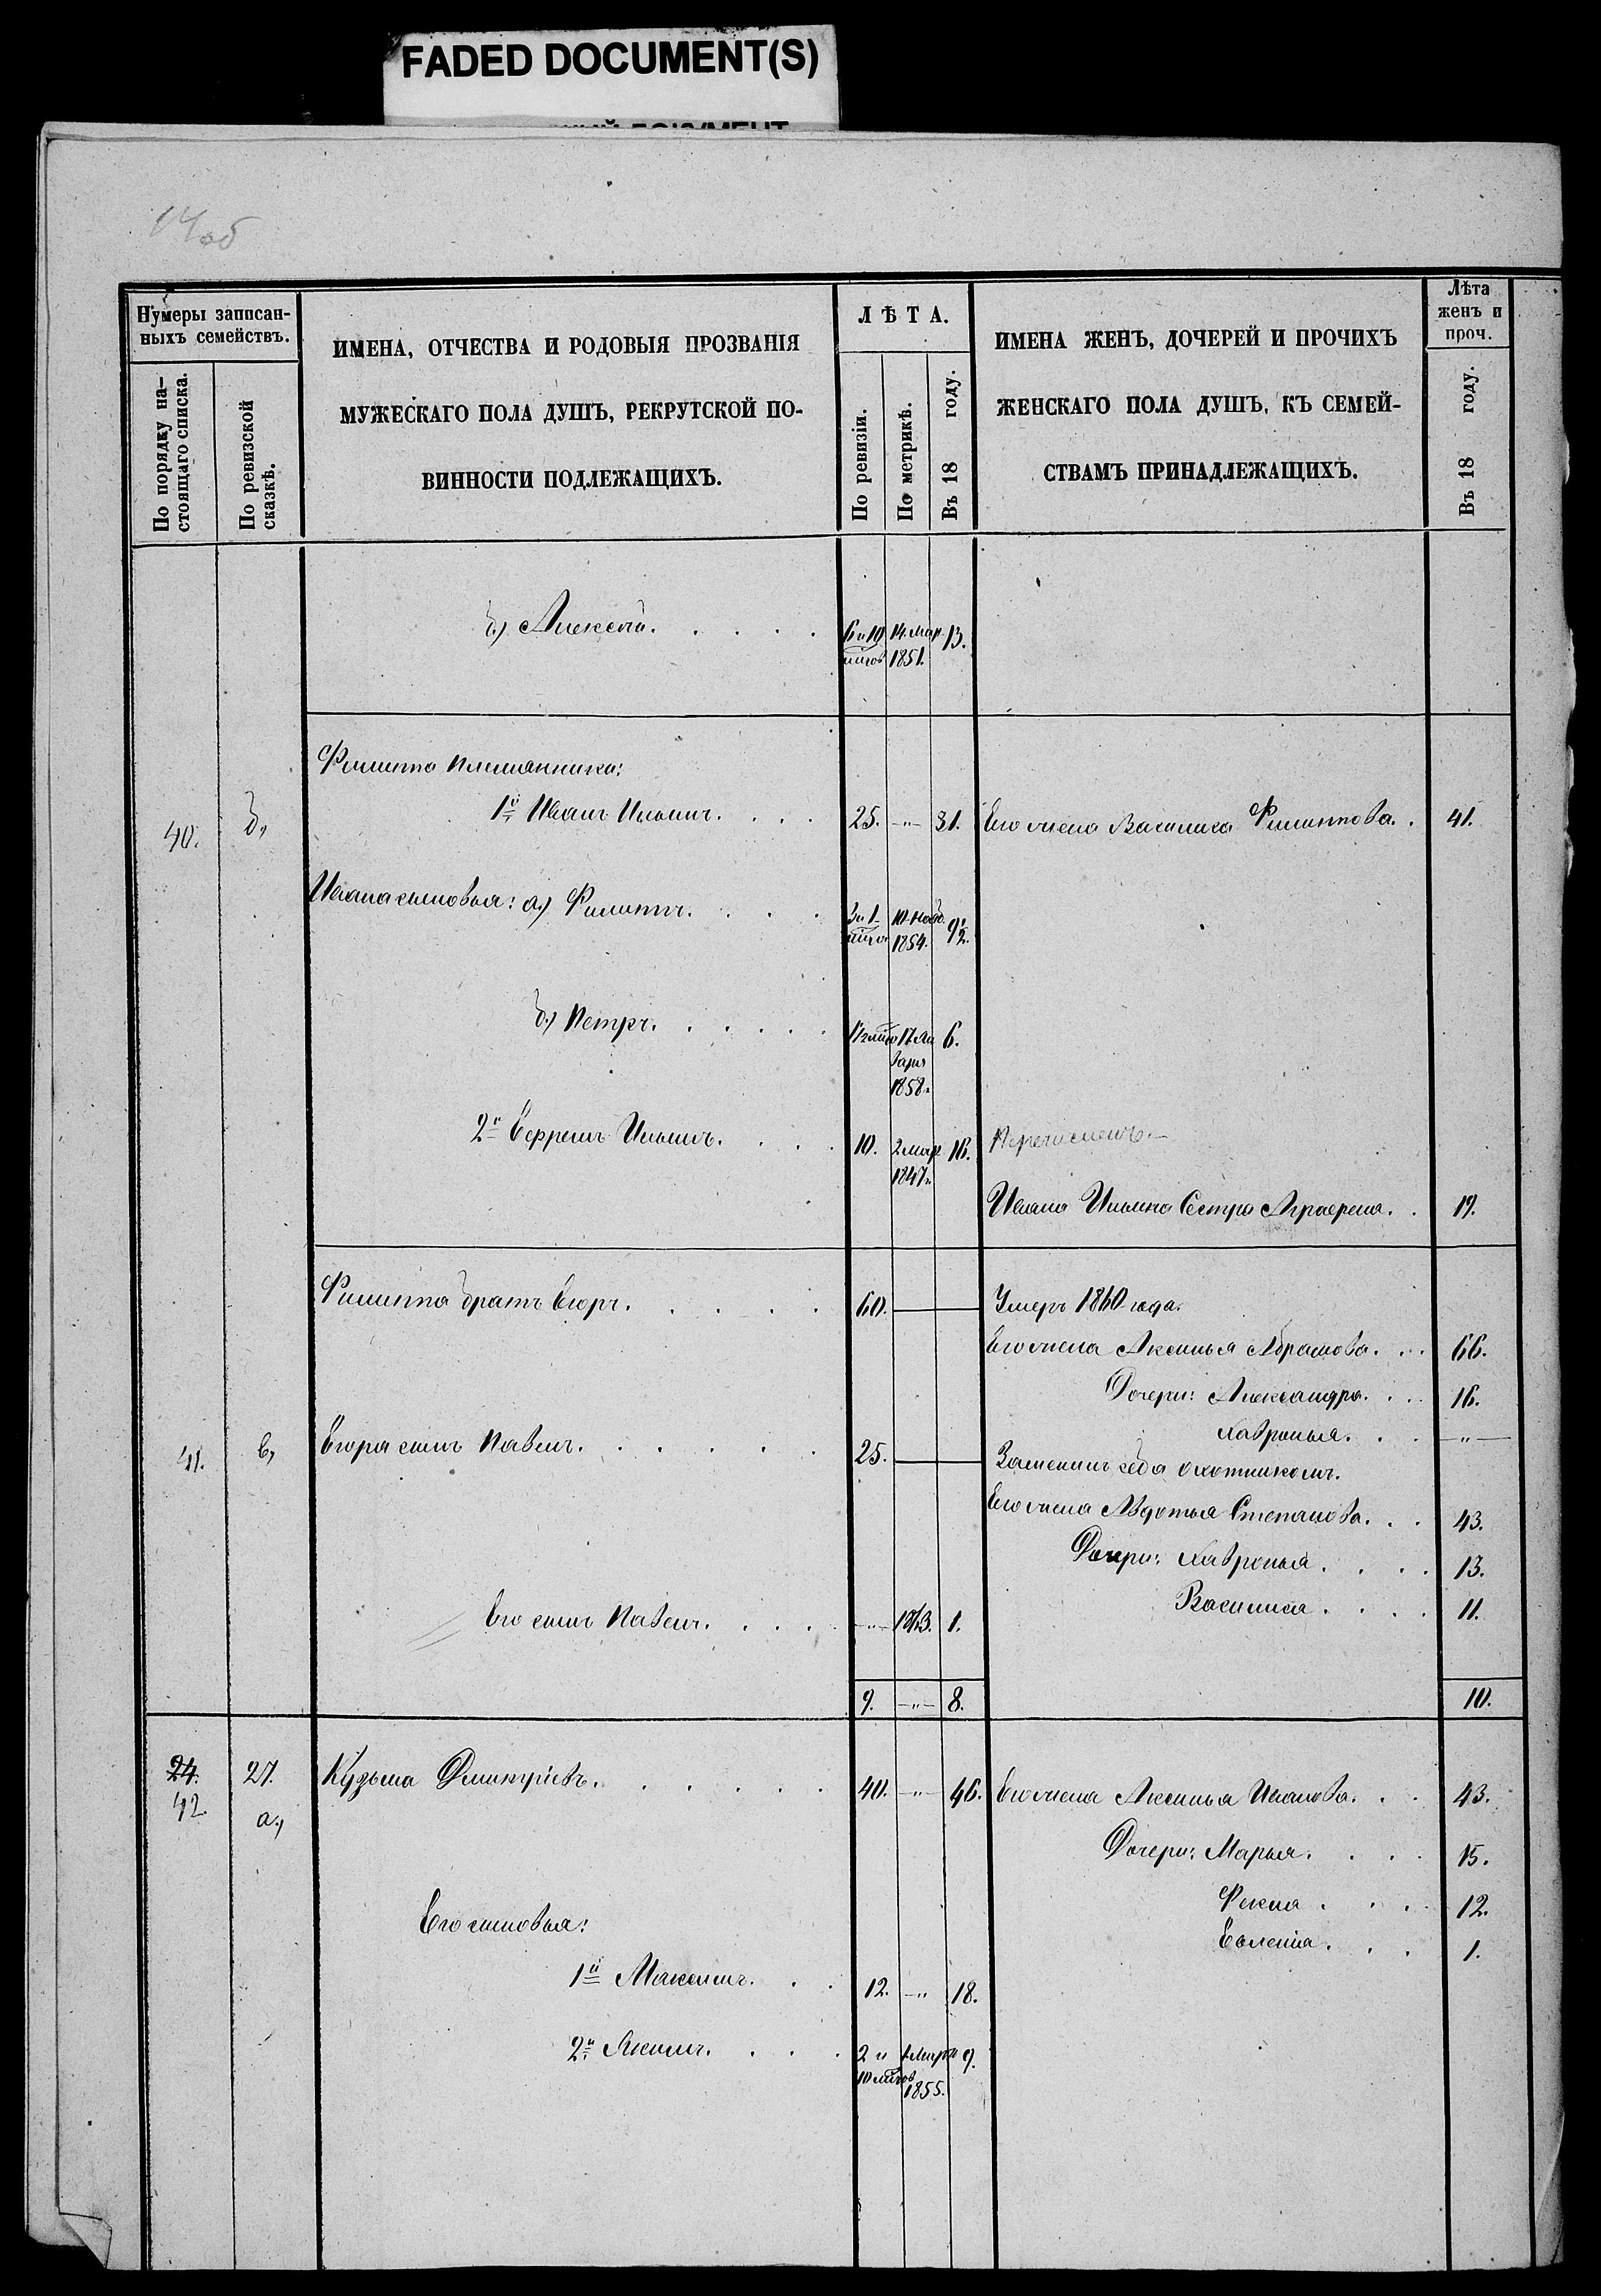 FADED DOCUMENT(S)
14об
Нумеры записан-
ныхъ семействъ.
По порядку на-
стоящаго списка.
По ревизской
сказкѣ.
ИМЕНА, ОТЧЕСТВА И РОДОВЫЯ ПРОЗВАНІЯ
МУЖЕСКАГО ПОЛА ДУШЪ, РЕКРУТСКОЙ ПО-
ВИННОСТИ ПОДЛЕЖАЩИХЪ.
ЛѢТА.
По ревизіи.
По метрикѣ.
Въ 18 году.
ИМЕНА ЖЕНЪ, ДОЧЕРЕЙ И ПРОЧИХЪ
ЖЕНСКАГО ПОЛА ДУШЪ, КЪ СЕМЕЙ-
СТВАМЪ ПРИНАДЛЕЖАЩИХЪ.
Лѣта
женъ и
проч.
Въ 18 году.
б.) Алексѣй. 6 и 10 14. мар. 13.
мѣсов 1851.
Филиппа племянники:
40. б, 1й Иванъ Ильинъ. 25. -"- 31. Его жена Василиса Филиппова. 41.
Ивана сыновья: а.) Филиппъ. 3 и 1 10 нояб. 9 1/2.
мѣсо 1854.
б.) Петръ. 1/2 мѣс 17 Ян 6.
варя
1858.
2й Ефремъ Ильинъ. 10. 2 мар 16. Перечисленъ.-
1847.
Ивана Ильина Сестра Аграфена. 19.
Филиппа братъ Егоръ. 60. Умеръ 1860 года.
Его жена Аксинья Абрамова. 66.
Дочери: Александра. 16.
Хавронья. -"-
41. в, Егора сынъ Павелъ. 25. Заменилъ себя охотникомъ.
Его жена Авдотья Степанова. 43.
Дочери: Хавронья. 13.
Василиса. 11.
Его сынъ Павелъ. -"- 1863. 1.
9. -"- 8. 10.
24. 27. Кузьма Дмитріевъ. 40. -"- 46. Его жена Аксинья Иванова. 43.
42. а.,
Дочери: Марья. 15.
Фекла. 12.
Его сыновья:
Евленія. 1.
1й Максимъ. 12. -"- 18.
2й Якимъ. 2 и 1 мар 9.
10 мѣсов 1855.